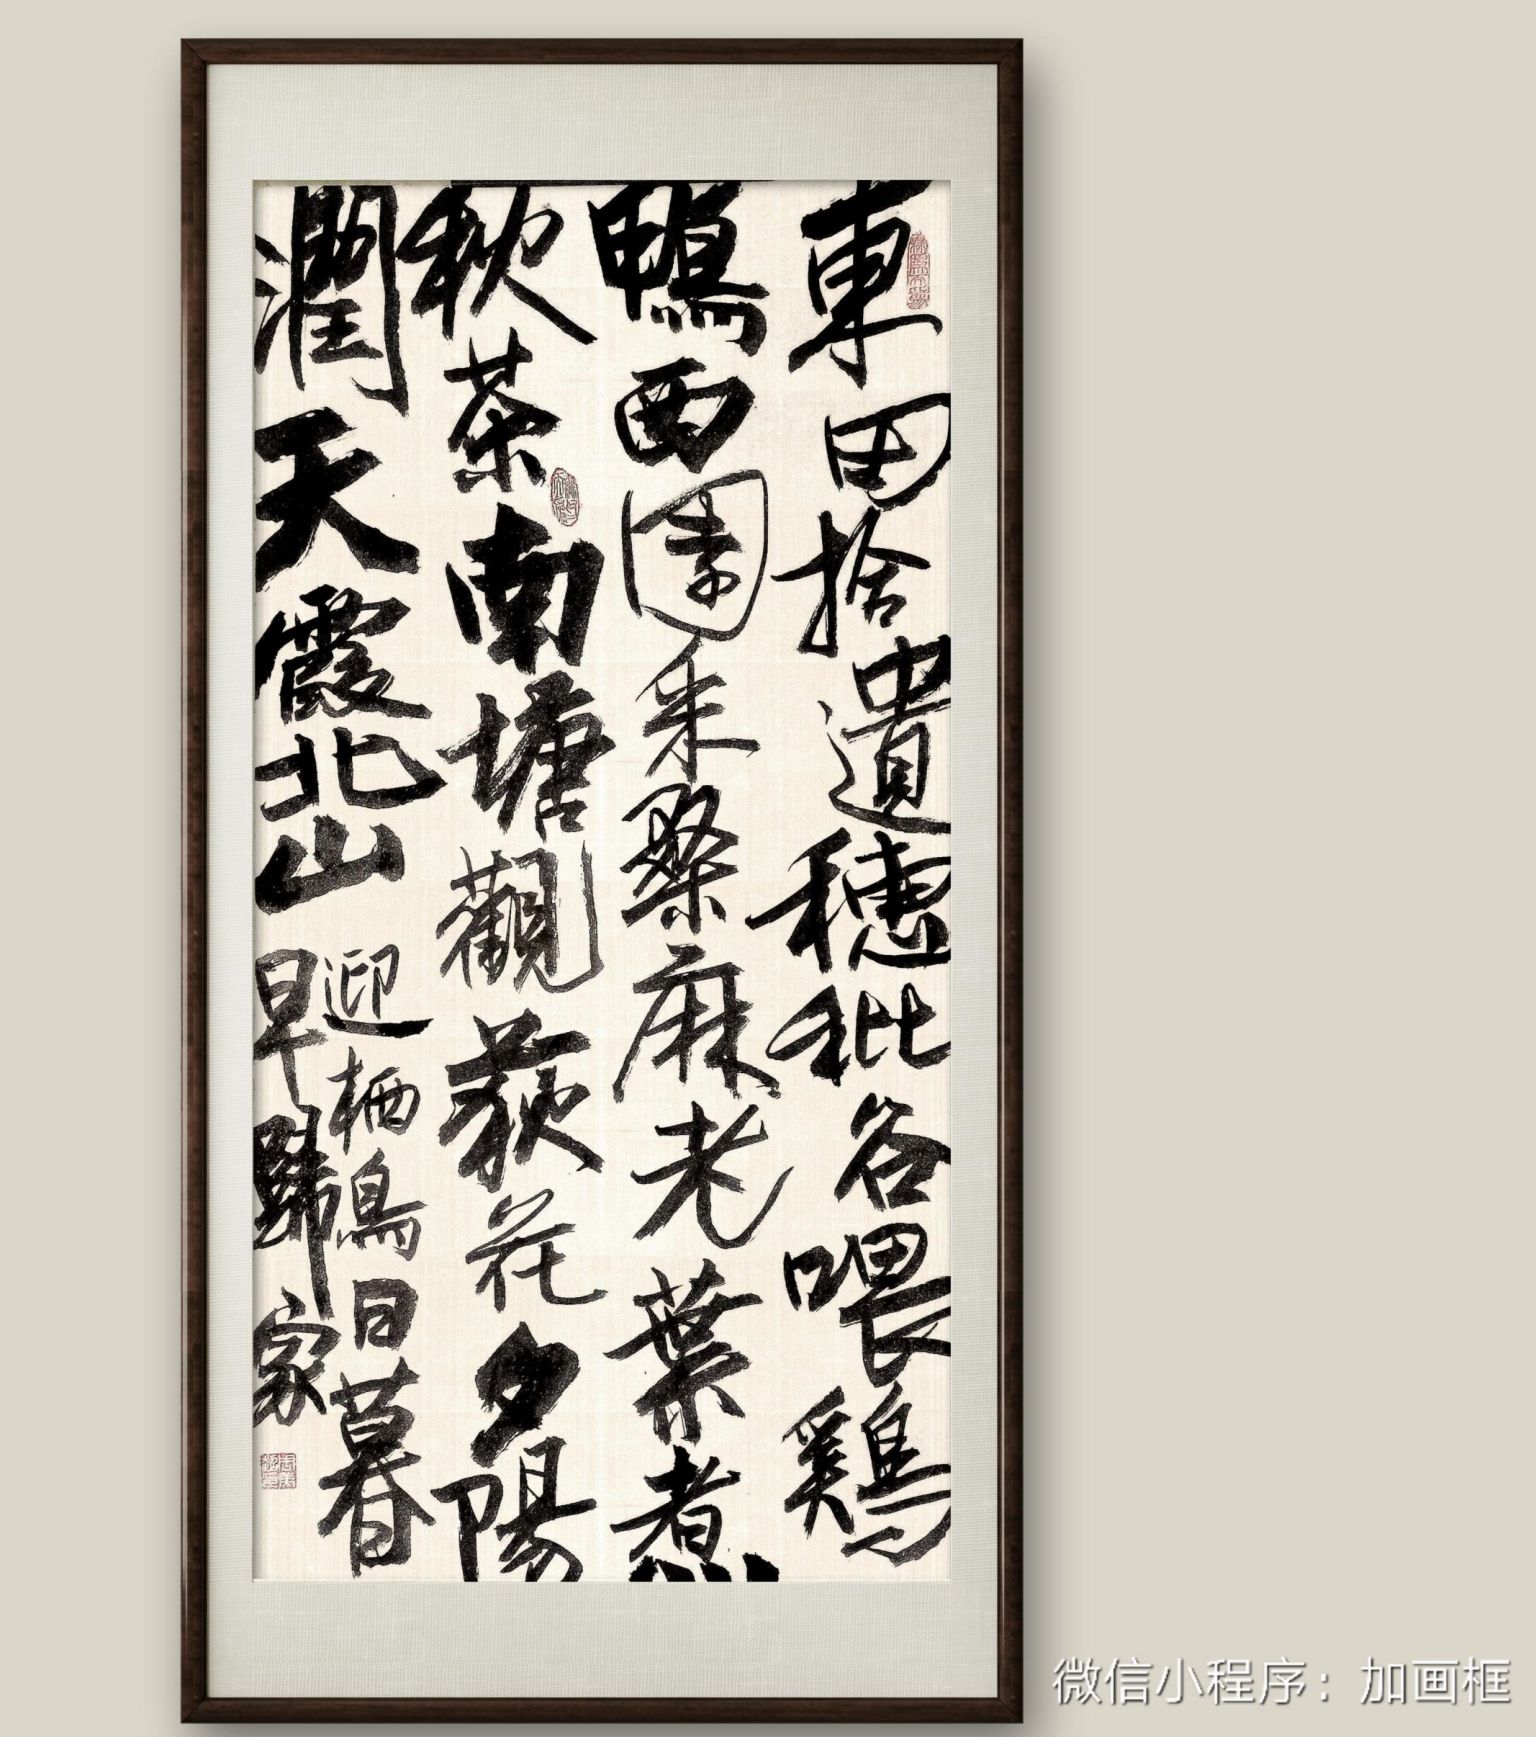 東田捨遺穗秕谷喂鷄
鴨西園采桑麻老葉煮
秋茶南塘觀荻花夕陽
潤天霞北山迎栖鳥日暮
早歸家
微信小程序：加画框